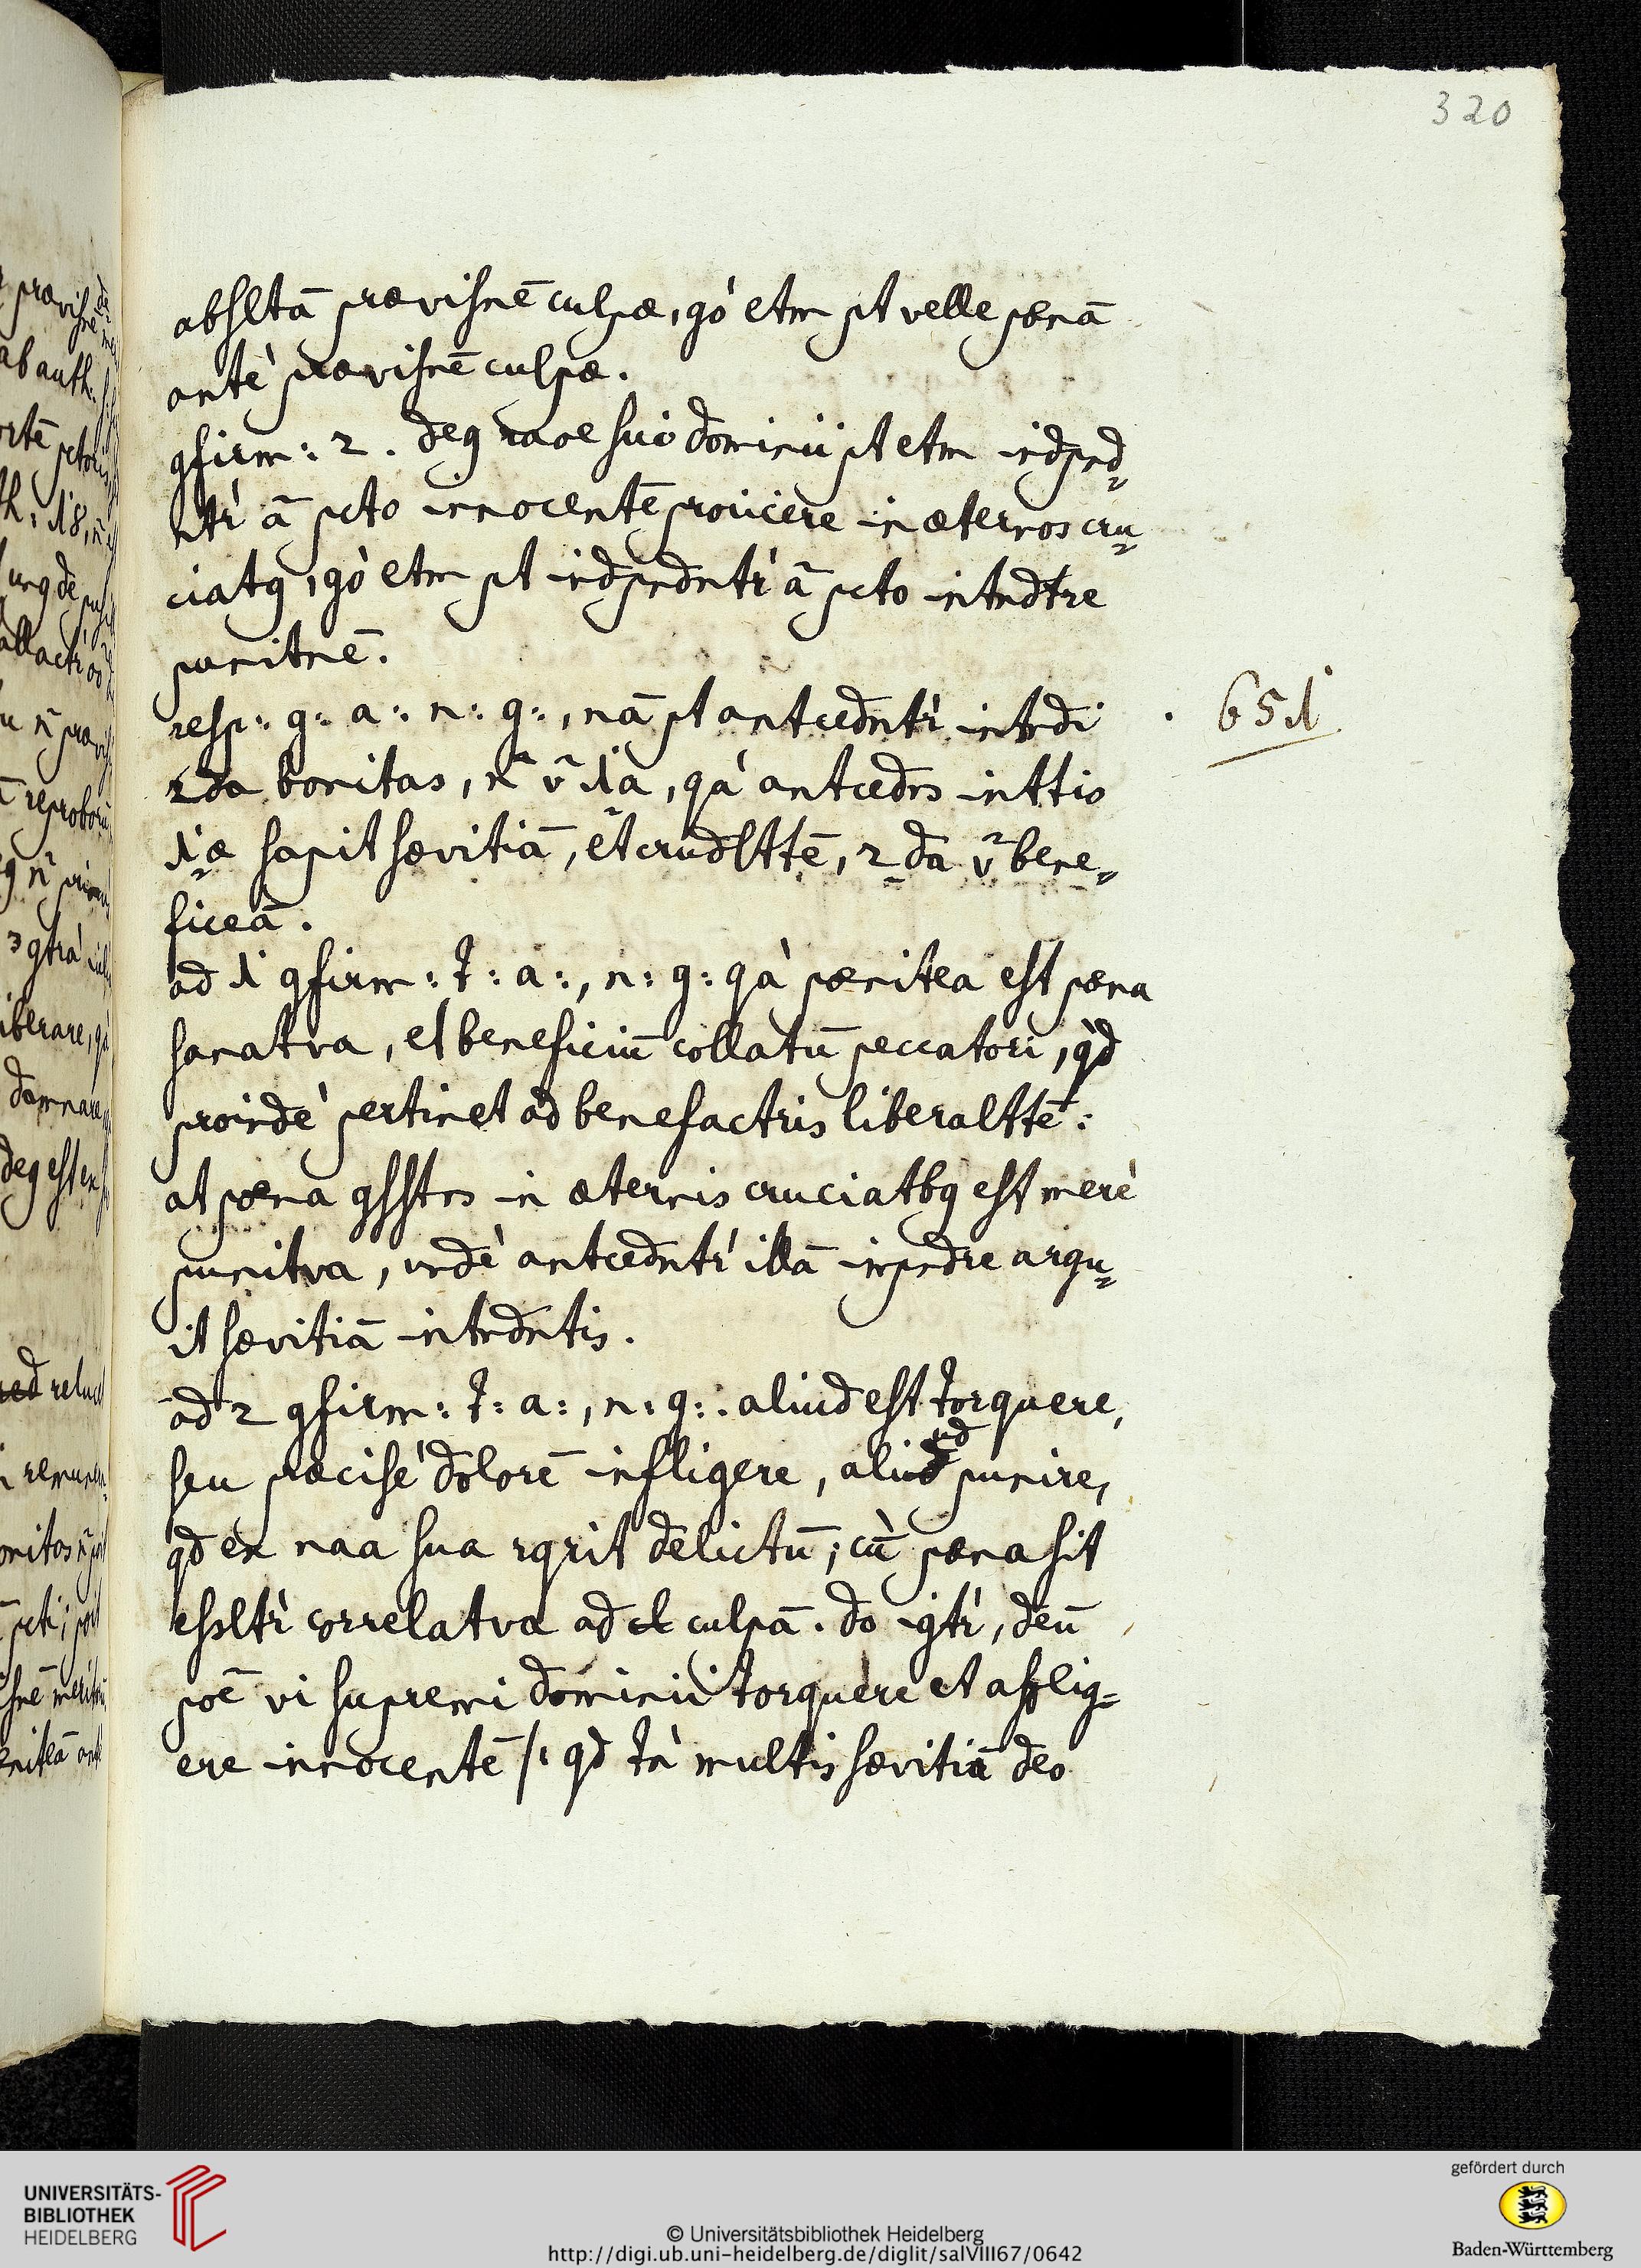 320
absltā prævisnē culpæ, gò etm pt velle pœnā
antè prævisnē culpæ.
gfirm: 2. deg raoe sui dominii pt etm indpnd„
ntr̀ ā pcto innocentē proiicere in æternos cru„
ciatg, gò etm pt indpndntr̀ ā pcto intndre
punitnē.
resp: g: a:. n: g:, nā pt antcedntr̀ intndi
651
2da bonitas, n̄ v̄ 1a, qà antcedns inttio
1æ sapit sævitiā, et crudlttē, 2da v̄ bene„
ficeā.
ad 1 gfirm: t: a:, n: g: qà pœnitea est pœna
sanatva, et beneficiū collatū peccatori, qd̀
proindè pertinet ad benefactris liberalttē:
at pœna gsstns in æternis cruciatbg est merè
punitva, undè antcedntr̀ illā inpndre argu„
it sævitiā intndntis.
ad 2 gfirm: t: a:, n: g:. aliud est torquere,
seu præcisè dolorē infligere, aliud punire,
qd ex naa sua rqrit delictū; cū̀ pœna sit
essltr̀ correlatva ad culpā. do igtr̀, deū
poē vi supremi dominii torquere et afflig=
ere innocentē /: qd tǹ multis sævitiā deo
UNIVERSITÄTS-
BIBLIOTHEK
HEIDELBERG
© Universitätsbibliothek Heidelberg
http://digi.ub.uni-heidelberg.de/diglit/salVIII67/0642
gefördert durch
Baden-Württemberg